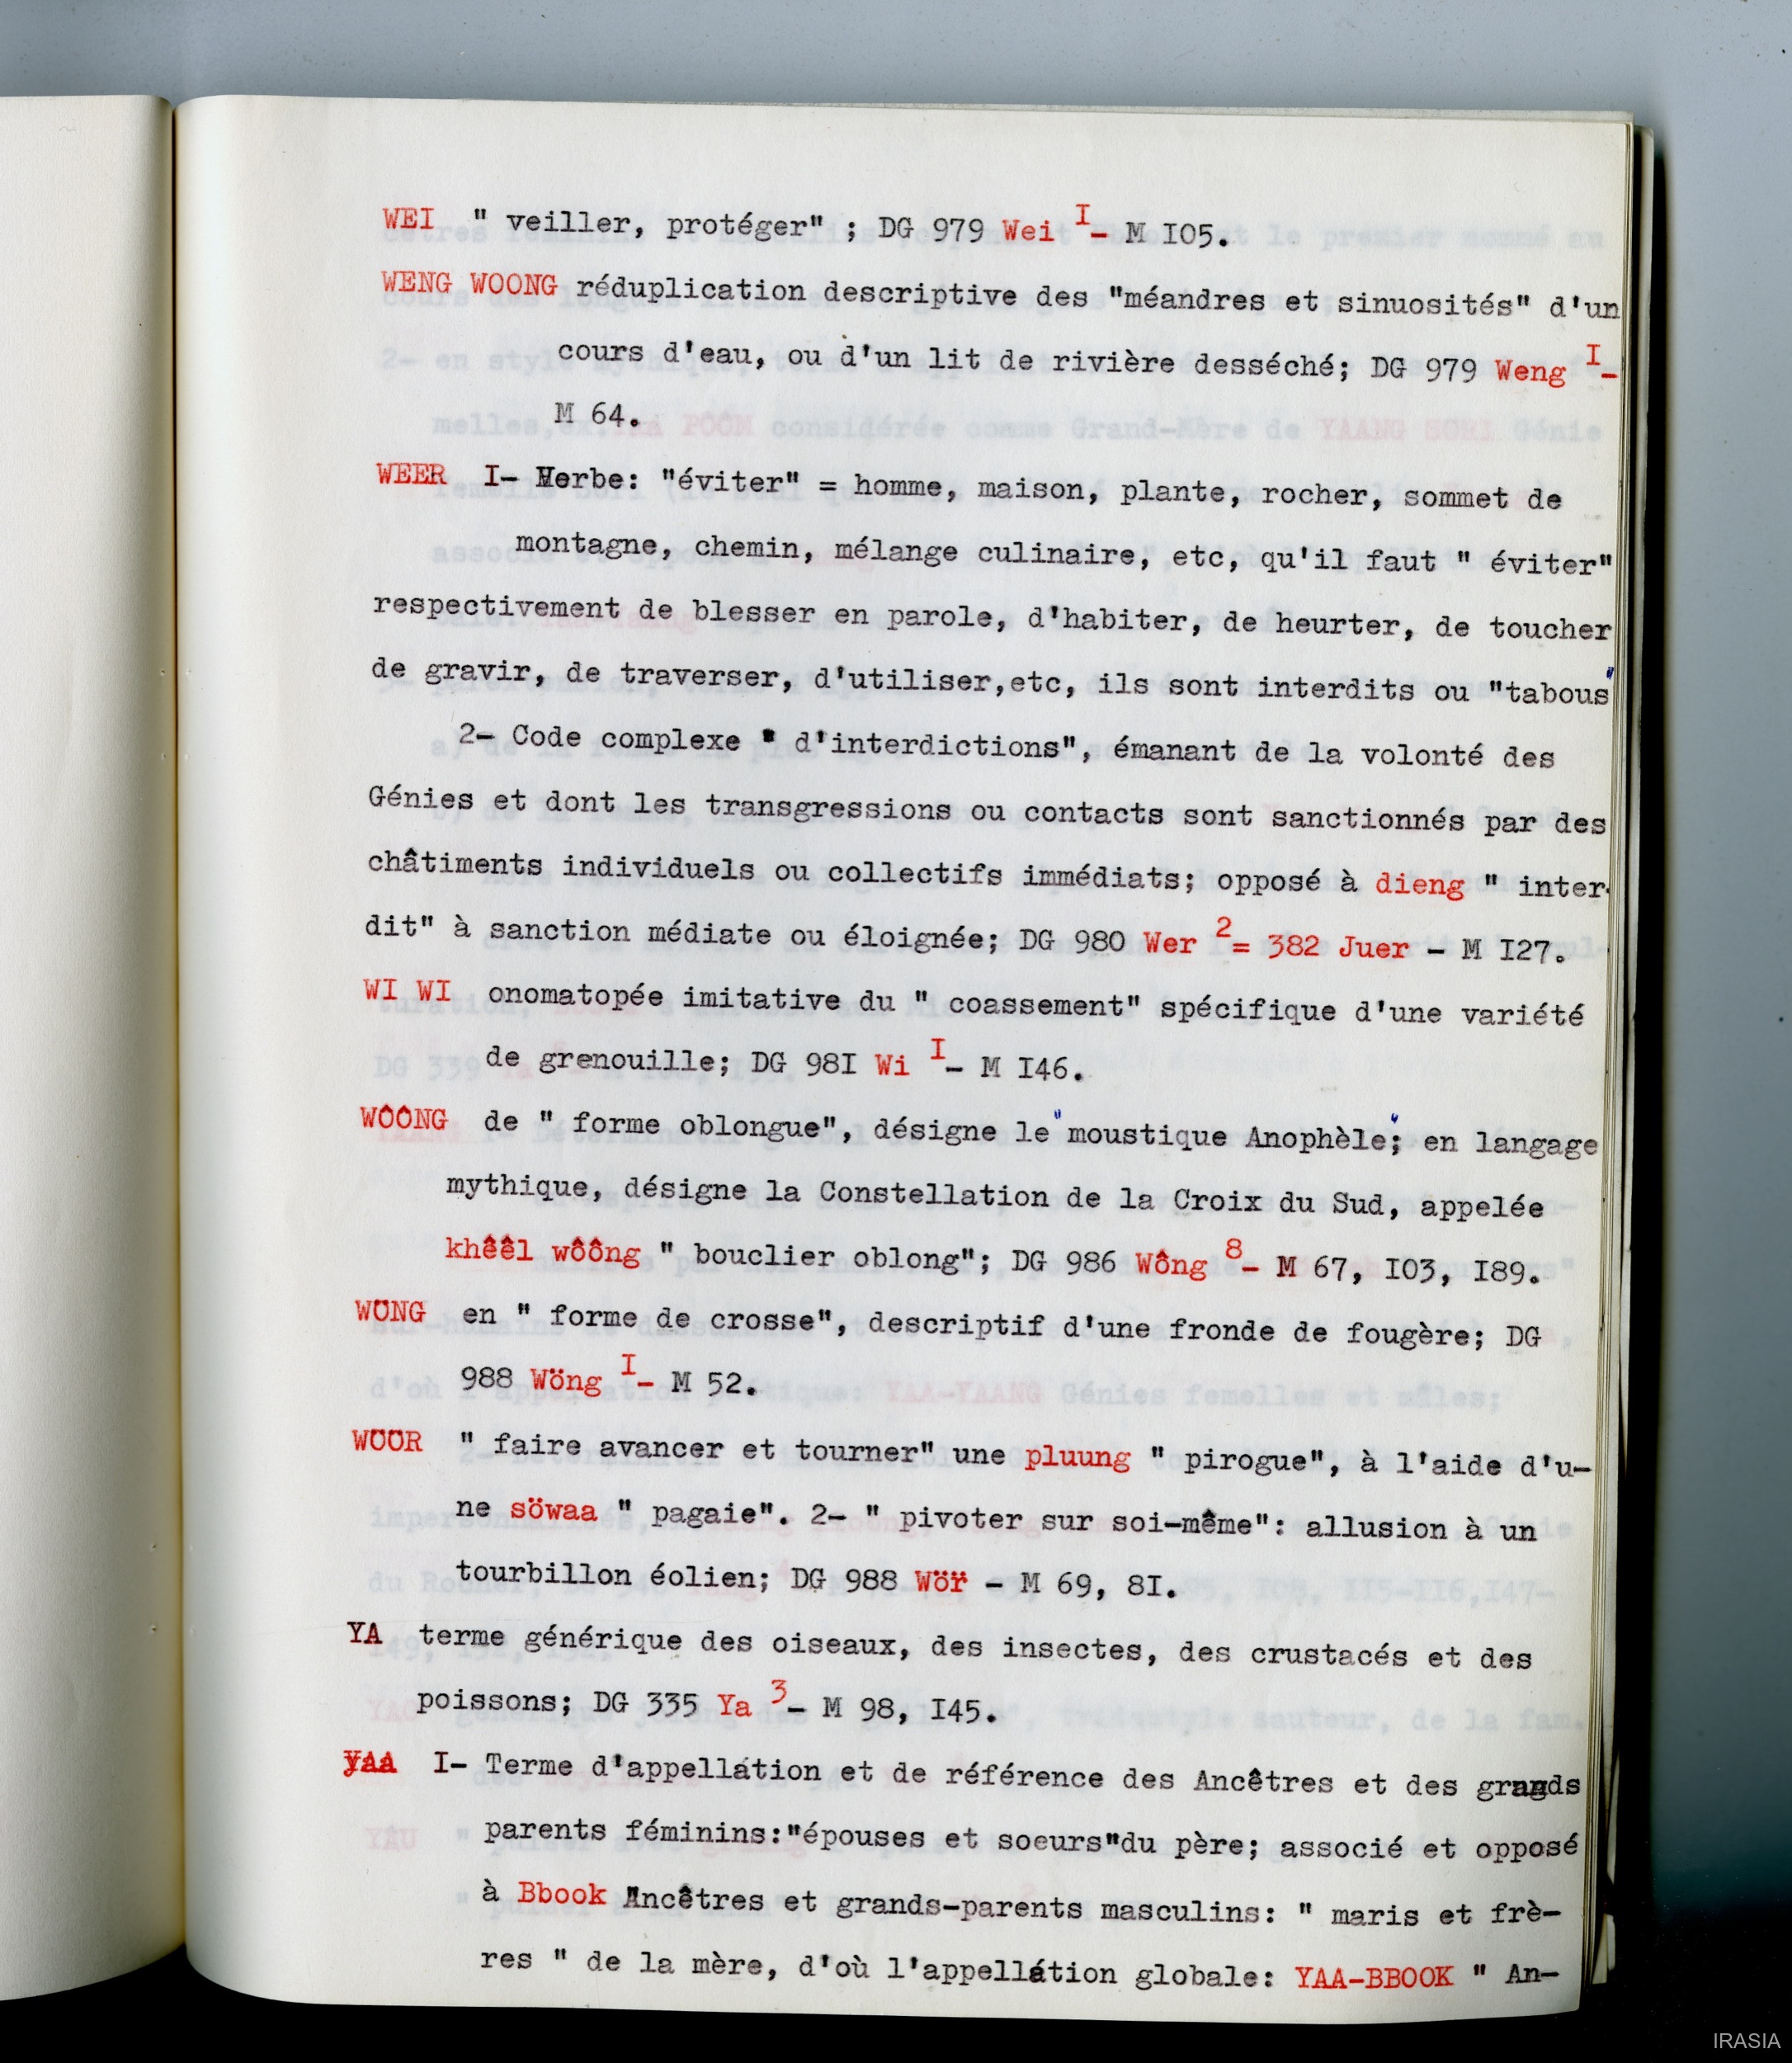 WEI " veiller, protéger" ; DG 979 Wei I- M I05.
WENG WOONG réduplication descriptive des "méandres et sinuosités" d'un
cours d'eau, ou d'un lit de rivière desséché; DG 979 Weng I-
M 64.
WEER I- Verbe: "éviter" = homme, maison, plante, rocher, sommet de
montagne, chemin, mélange culinaire, etc, qu'il faut " éviter"
respectivement de blesser en parole, d'habiter, de heurter, de toucher
de gravir, de traverser, d'utiliser,etc, ils sont interdits ou "tabous"
2- Code complexe " d'interdictions", émanant de la volonté des
Génies et dont les transgressions ou contacts sont sanctionnés par des
châtiments individuels ou collectifs immédiats; opposé à dieng " inter-
dit" à sanction médiate ou éloignée; DG 980 Wer 2= 382 Juer - M I27.
WI WI onomatopée imitative du " coassement" spécifique d'une variété
de grenouille; DG 98I Wi I- M I46.
WÔÔNG de " forme oblongue", désigne le "moustique Anophèle"; en langage
mythique, désigne la Constellation de la Croix du Sud, appelée
khêêl wôông " bouclier oblong"; DG 986 Wông 8- M 67, I03, I89.
WÖNG en " forme de crosse", descriptif d'une fronde de fougère; DG
988 Wöng I- M 52.
WÖÖR " faire avancer et tourner" une pluung " pirogue", à l'aide d'u-
ne söwaa " pagaie". 2- " pivoter sur soi-même": allusion à un
tourbillon éolien; DG 988 Wör - M 69, 8I.
YA terme générique des oiseaux, des insectes, des crustacés et des
poissons; DG 335 Ya 3- M 98, I45.
YAA I- Terme d'appellation et de référence des Ancêtres et des grands
parents féminins:"épouses et soeurs"du père; associé et opposé
à Bbook Ancêtres et grands-parents masculins: " maris et frè-
res " de la mère, d'où l'appellation globale: YAA-BBOOK " An-
IRASIA